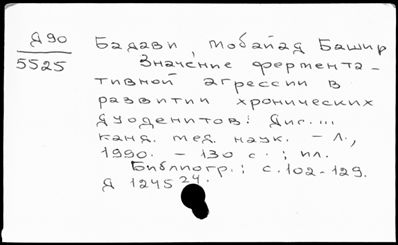 Д90
5525
Бадави, Мобайяд Башир
Значение фермента-
тивной агрессии в
развитии хронических
дуоденитов: Дис. ...
канд. мед. наук. - Л.,
1990. - 130 с.; ил.
Библиогр.: с. 102-129.
Д 1245 24.